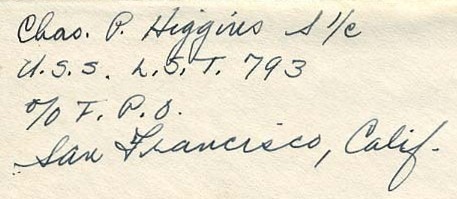 Chas. P. Higgins S 1/c
U.S.S. L.S.T. 793
℅ F.P.O.
San Francisco, Calif.